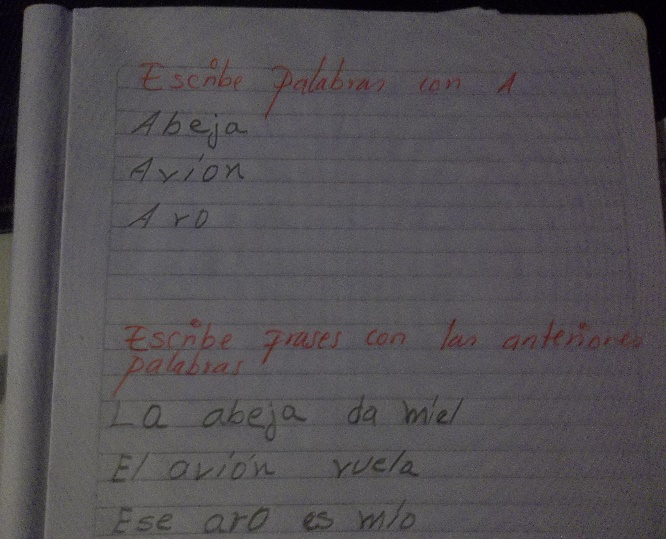 Escribe palabras con A
Abeja
Avión
Aro
Escribe frases con las anteriores
palabras
La abeja da miel
El avión vuela
Ese aro es mío